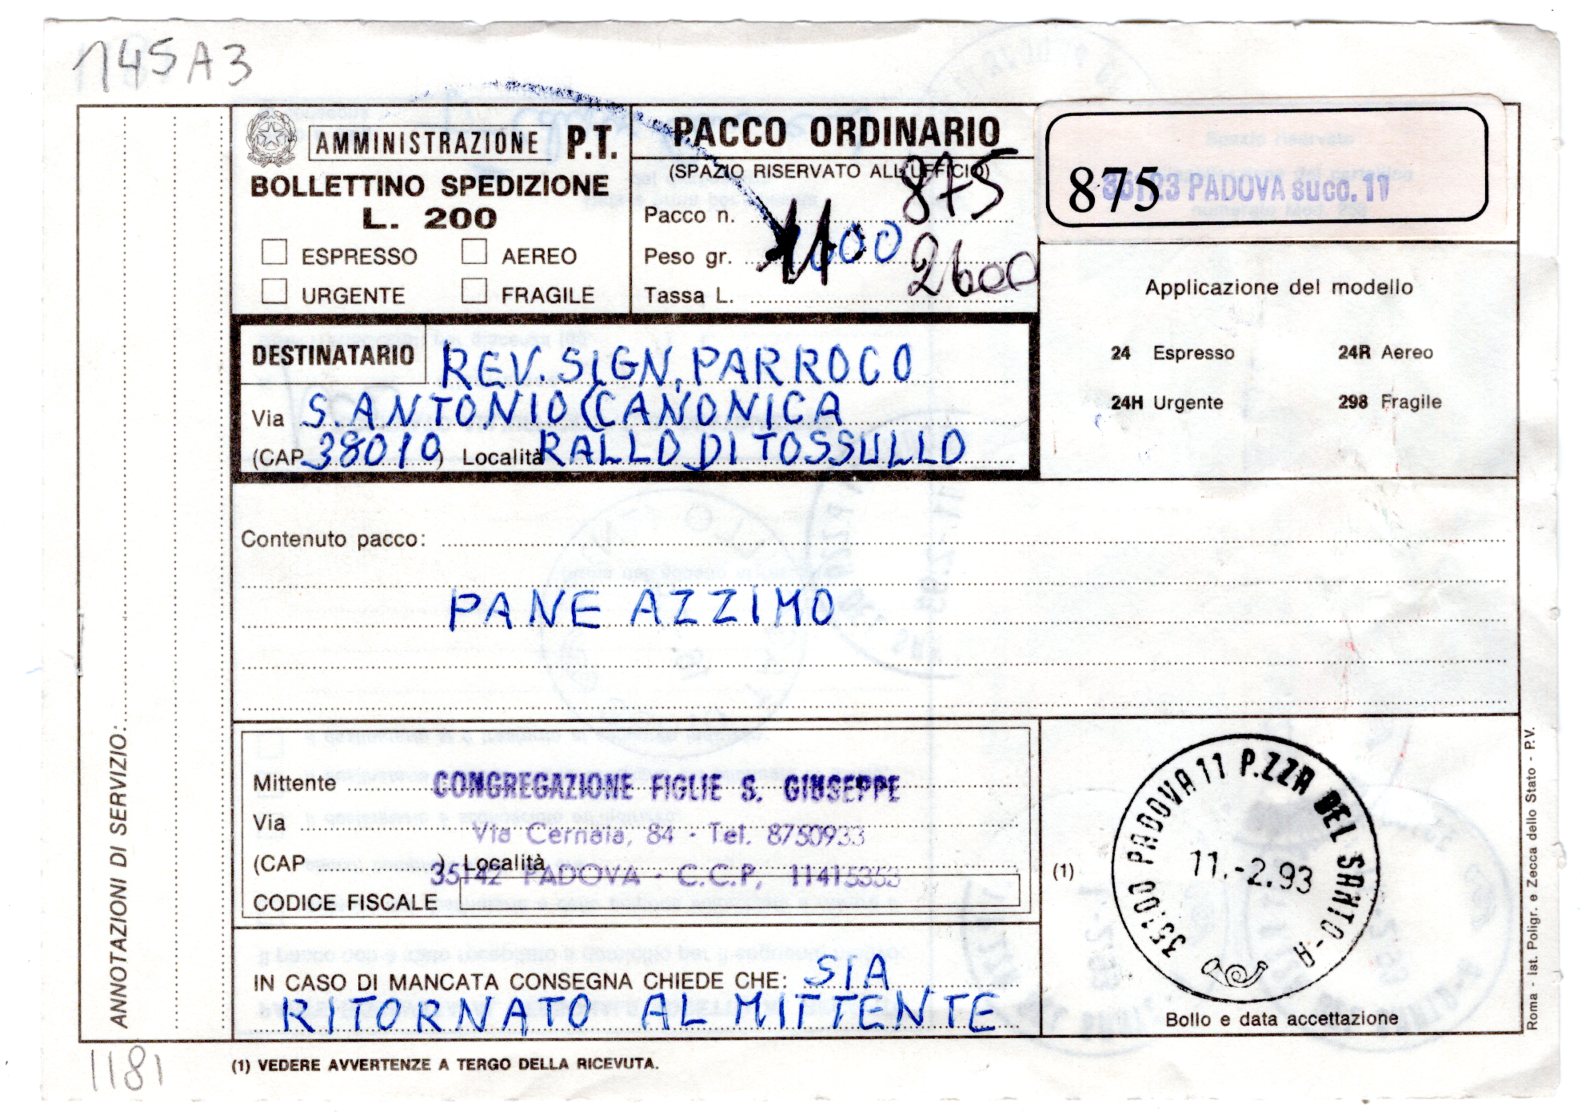 145A3
AMMINISTRAZIONE P.T.
BOLLETTINO SPEDIZIONE
L. 200
ESPRESSO AEREO
URGENTE FRAGILE
PACCO ORDINARIO
(SPAZIO RISERVATO ALL'UFFICIO)
Pacco n. 875
Peso gr. 2600
Tassa L.
875 35123 PADOVA succ. 11
Applicazione del modello
24 Espresso 24R Aereo
24H Urgente 298 Fragile
DESTINATARIO REV. SIGN. PARROCO
Via S. ANTONIO (CANONICA
(CAP 38010) Località RALLO DI TOSSULLO
Contenuto pacco:
PANE AZZIMO
ANNOTAZIONI DI SERVIZIO:
Mittente CONGREGAZIONE FIGLIE S. GIUSEPPE
Via Via Cernaia, 84 - Tel. 8750933
(CAP ) Località
35142 PADOVA - C.C.P. 11415353
CODICE FISCALE
IN CASO DI MANCATA CONSEGNA CHIEDE CHE: SIA
RITORNATO AL MITTENTE
(1)
35100 PADOVA 11 P.ZZA DEL SANTO - A
11.-2.93
Bollo e data accettazione
Roma - Ist. Poligr. e Zecca dello Stato - P.V.
1181
(1) VEDERE AVVERTENZE A TERGO DELLA RICEVUTA.